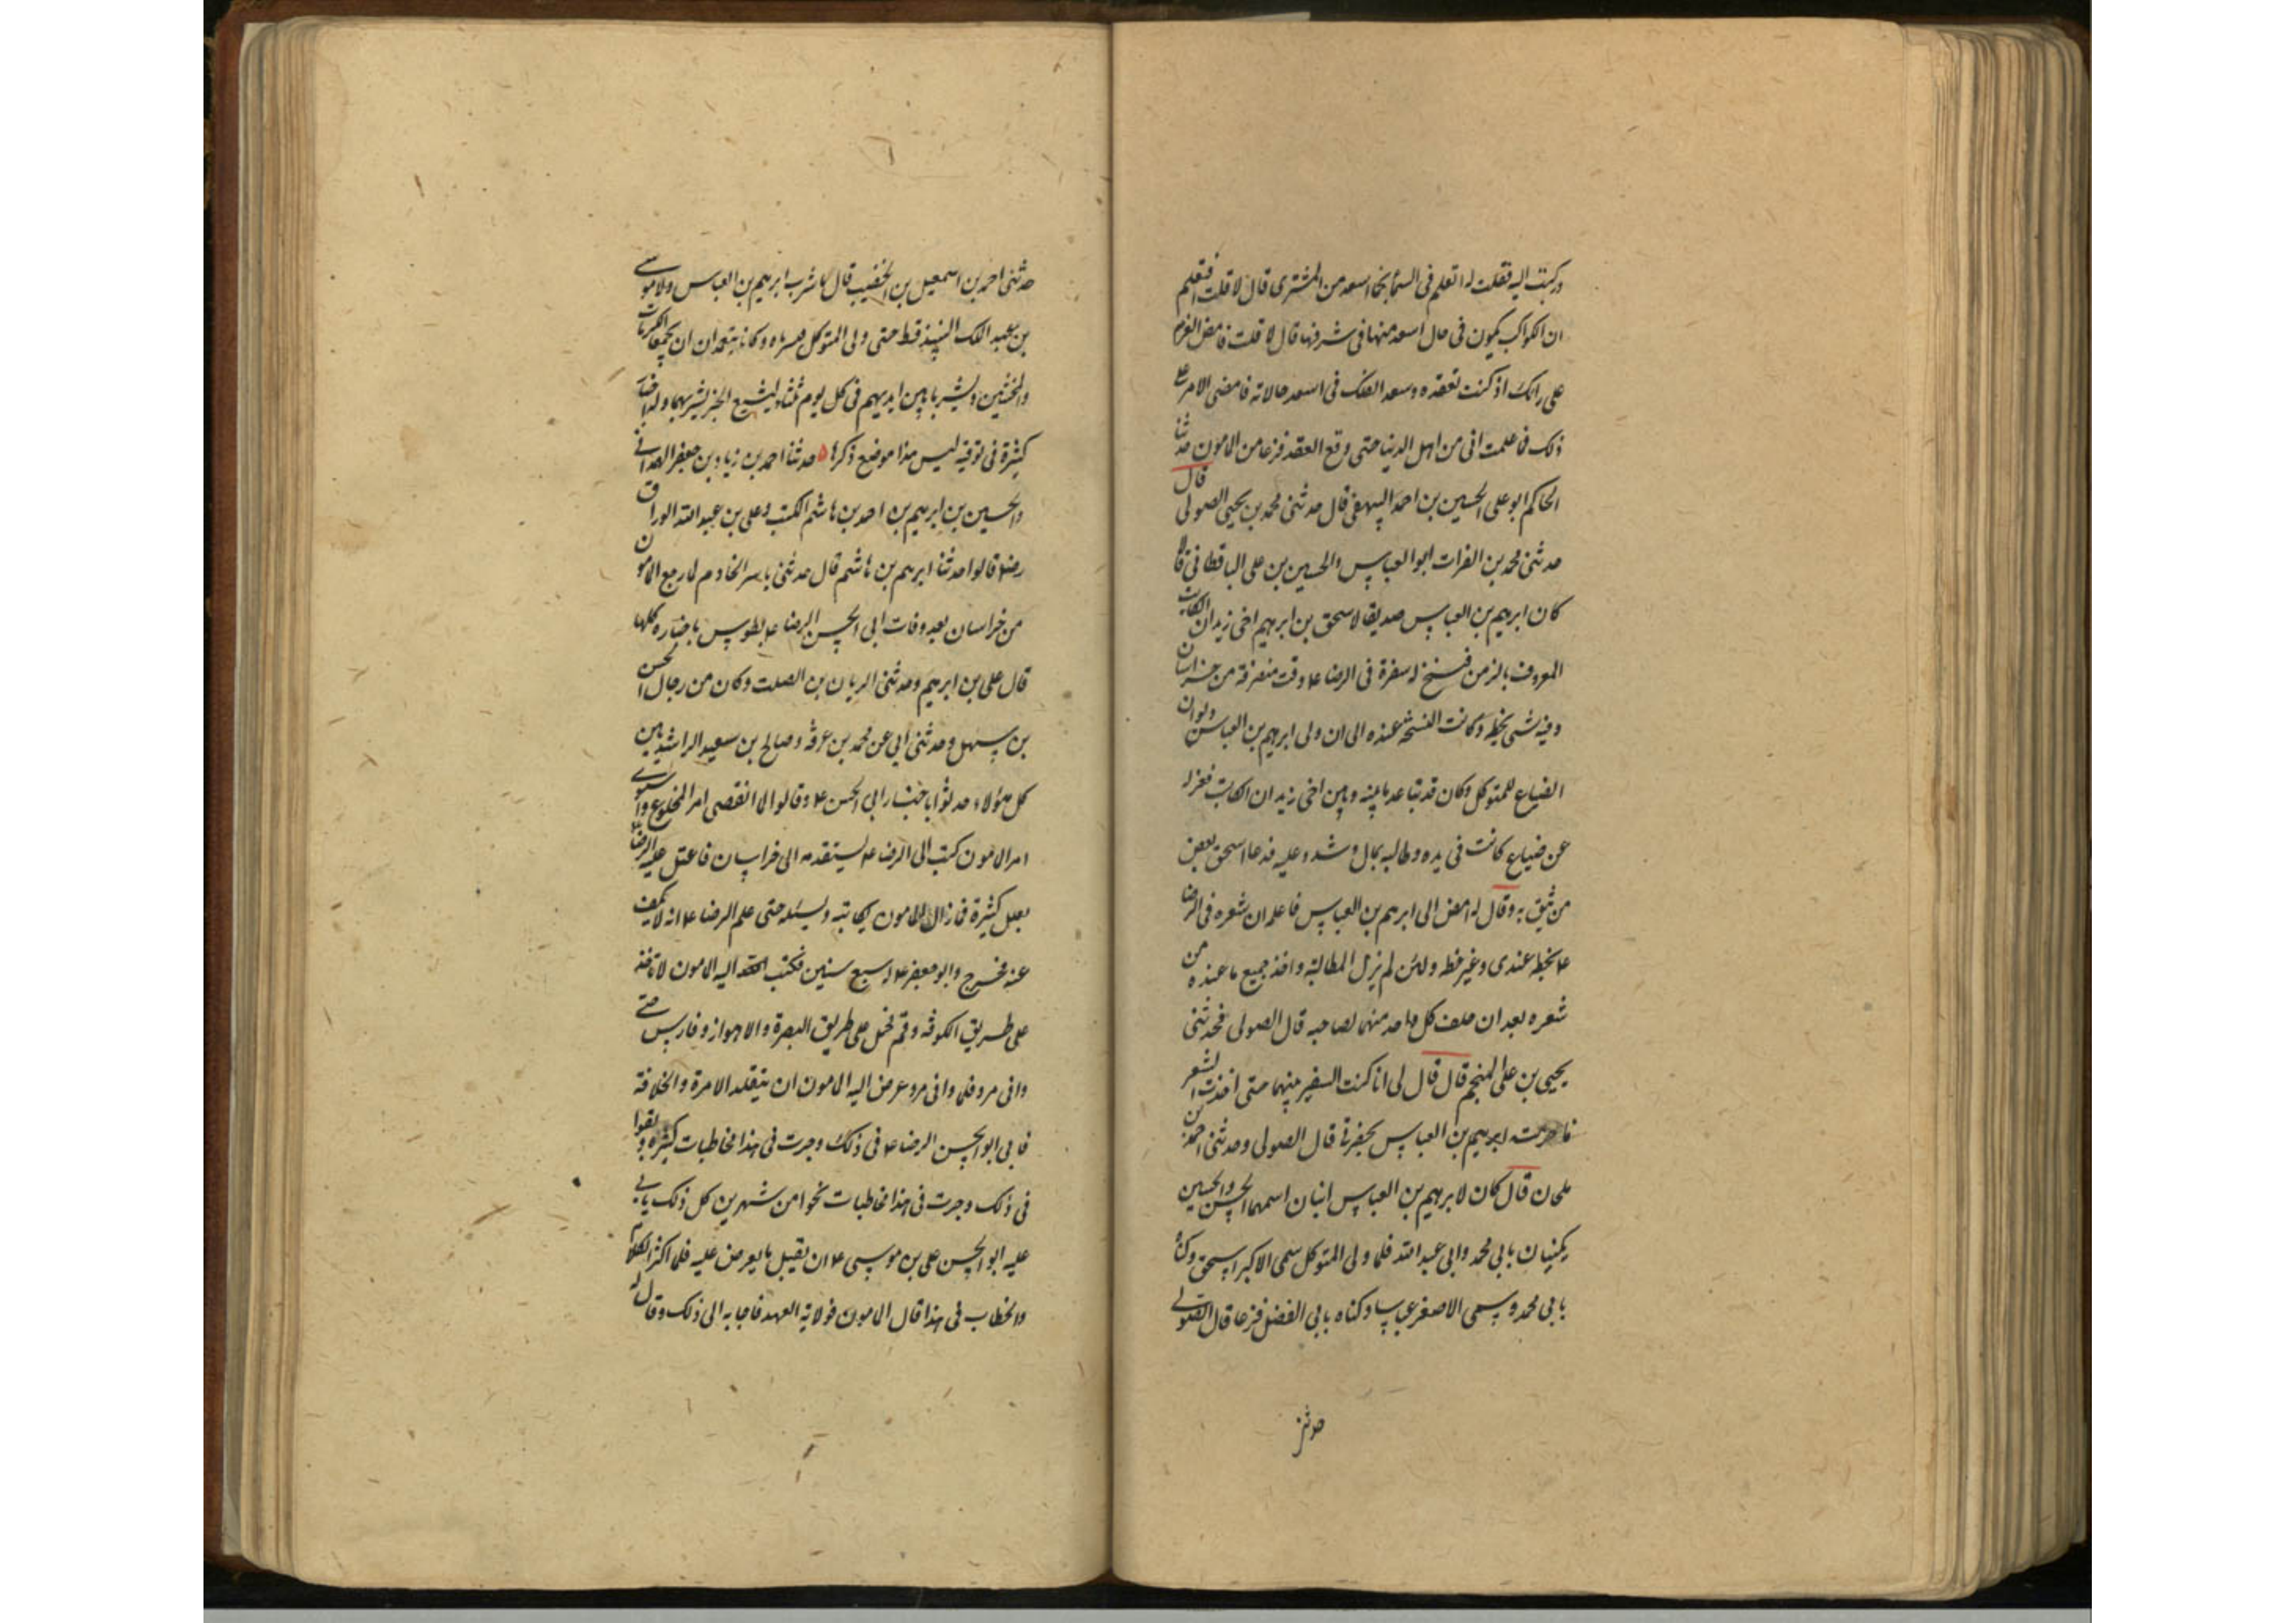 وركبت اليه فقلت له اتعلم فى السماء نجما اسعد من المشترى قال لا قلت افتعلم
ان الكواكب يكون فى حال اسعد منها فى شرفها قال لا قلت فامض العزم
على رايك اذ كنت تعقده وسعد الفلك فى اسعد حالاته فامضى الامر على
ذلك فما علمت انى من اهل الدنيا حتى وقع العقد فزعا من المامون حدثنا
الحاكم ابو على الحسين بن احمد البيهقى قال حدثنى محمد بن يحيى الصولى قال
حدثنى محمد بن الفرات ابو العباس والحسين بن على الباقطانى قالا
كان ابرهيم بن العباس صديقا لاسحق بن ابرهيم اخى زيدان الكاتب
المعروف بالزمن فنسخ له سفره فى الرضا ع وقت منصرفه من خراسان
وفيه شى بخطه وكانت النسخة عنده الى ان ولى ابرهيم بن العباس ديوان
الضياع للمتوكل وكان قد تباعد ما بينه وبين اخى زيدان الكاتب فعزله
عن ضياع كانت فى يده وطالبه بمال وشدد عليه فدعا اسحق بعض
من يثق به وقال له امض الى ابرهيم بن العباس فاعلمه ان شعره فى الرضا
ع بخطه عندى وغير خطه ولئن لم يزل المطالبة واخذ جميع ما عنده من
شعره بعد ان حلف كل واحد منهما لصاحبه قال الصولى فحدثنى
يحيى بن على المنجم قال قال لى انا كنت السفير بينهما حتى اخذت الشعر
فاحرقه ابرهيم بن العباس بحضرتى قال الصولى وحدثنى احمد بن
ملحان قال كان لابرهيم بن العباس ابنان اسمهما الحسن والحسين
يكنيان بابى محمد وابى عبد الله فلما ولى المتوكل سمى الاكبر اسحق وكناه
بابى محمد وسمى الاصغر عباسا وكناه بابى الفضل فزعا قال الصولى
حدثنى
حدثنى احمد بن اسمعيل بن الخضيب قال ما شرب ابرهيم بن العباس ولا موسى
بن عبد الملك النبيذ قط حتى ولى المتوكل فشرباه وكانا يتعمدان ان يجمعا الكراعات
والمخنثين ويشربا بين ايديهم فى كل يوم ثلثا ليشيع الخبر بشربهما وله اخبار
كثيرة فى توقيه ليس هذا موضع ذكرها ه حدثنا احمد بن زياد بن جعفر الهمدانى
والحسين بن ابرهيم بن احمد بن هاشم المكتب وعلى بن عبد الله الوراق
رضهم قالوا حدثنا ابرهيم بن هاشم قال حدثنى ياسر الخادم لما رجع المامون
من خراسان بعد وفات ابى الحسن الرضا ع بطوس باخباره كلها
قال على بن ابرهيم وحدثنى الريان بن الصلت وكان من رجال الحسن
بن سهل وحدثنى ابى عن محمد بن عرفه وصالح بن سعيد الراشديين
كل هؤلاء حدثوا باخبار ابى الحسن ع وقالوا لما انقضى امر المخلوع واستوى
امر المامون كتب الى الرضا ع يستقدمه الى خراسان فاعتل عليه الرضا ع
بعلل كثيرة فما زال المامون يكاتبه ويسئله حتى علم الرضا ع انه لا يكف
عنه فخرج وابو جعفر ع له سبع سنين فكتب اليه المامون لا تاخذ
على طريق الكوفه وقم فحمل على طريق البصرة والاهواز وفارس حتى
وافى مرو فلما وافى مرو عرض اليه المامون ان يتقلد الامرة والخلافة
فابى ابو الحسن الرضا ع فى ذلك وجرت فى هذا مخاطبات كثيرة وبقوا
فى ذلك وجرت فى هذا مخاطبات نحوا من شهرين كل ذلك يابى
عليه ابو الحسن على بن موسى ع ان يقبل ما يعرض عليه فلما اكثر الكلام
والخطاب فى هذا قال المامون فولاية العهد فاجابه الى ذلك وقال له